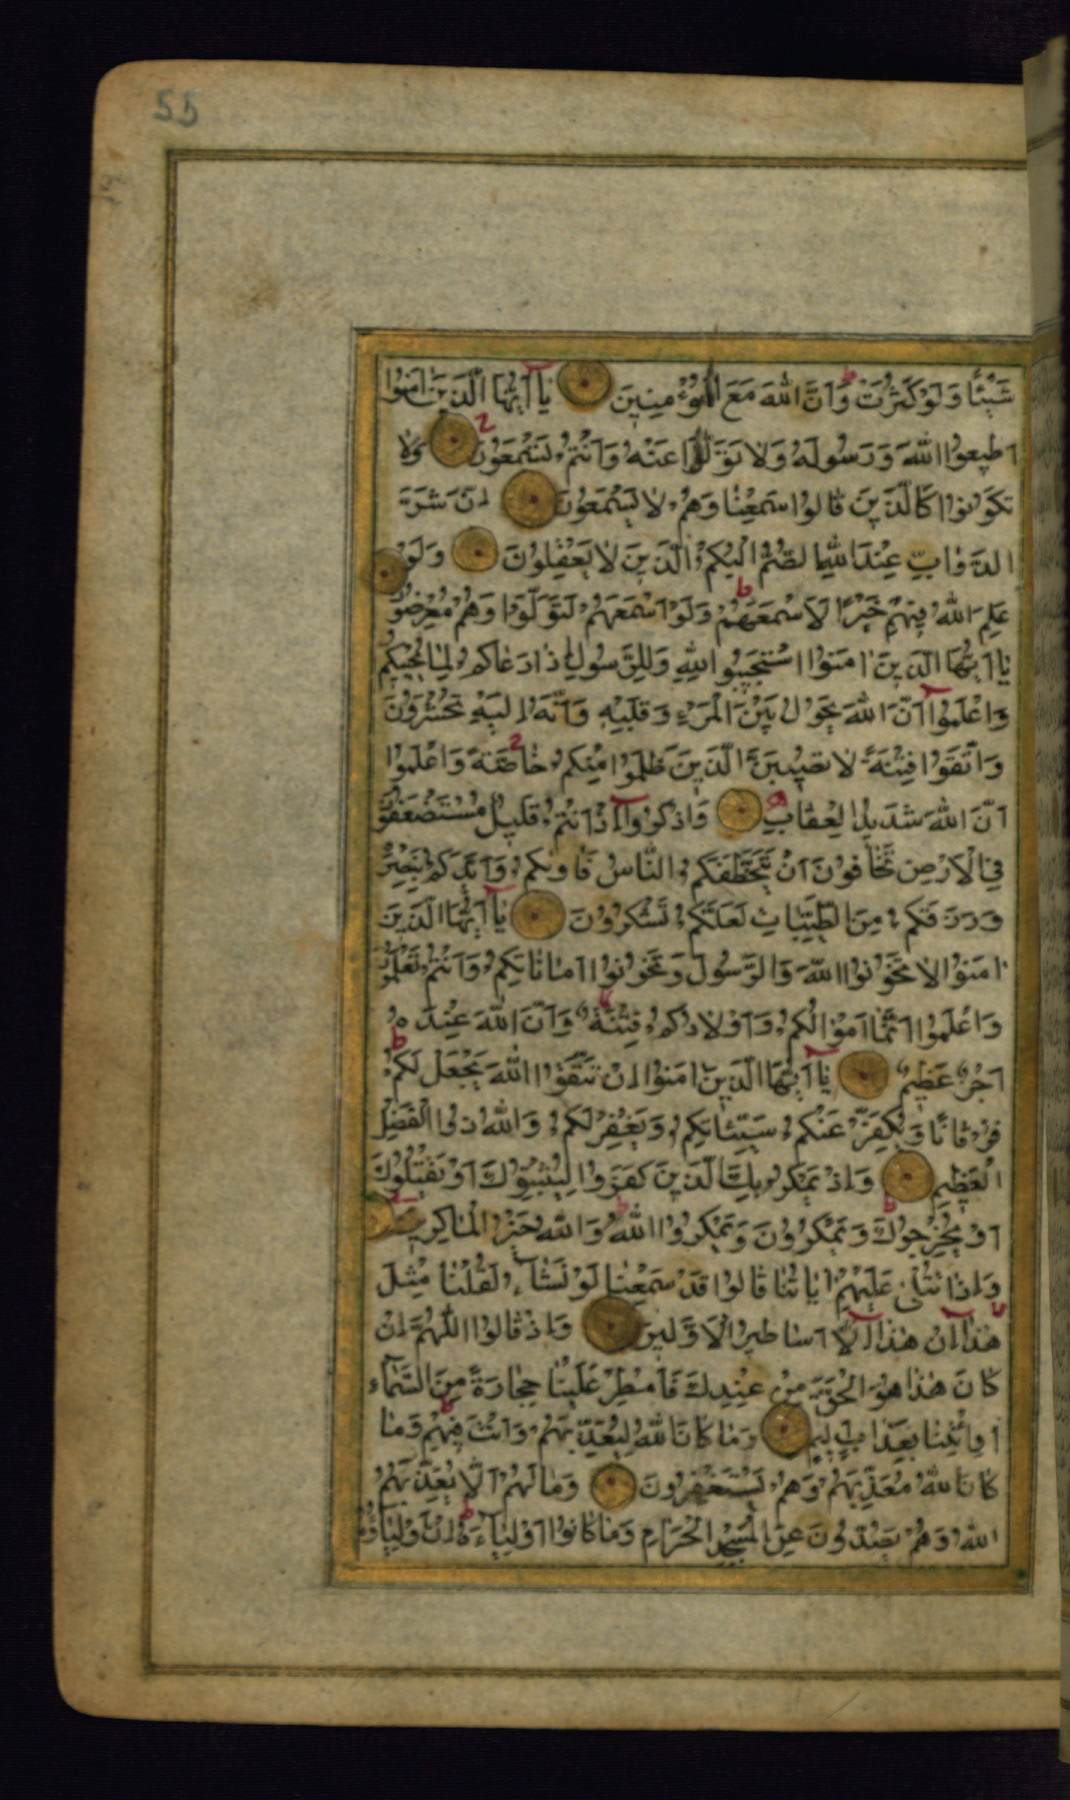 55
شَيْئًا وَلَوْ كَثُرَتْ وَاَنَّ اللّٰهَ مَعَ الْمُؤْمِنِينَ يٰٓا اَيُّهَا الَّذِينَ اٰمَنُوا
اَطِيعُوا اللّٰهَ وَرَسُولَهُ وَلَا تَوَلَّوْا عَنْهُ وَاَنْتُمْ تَسْمَعُونَ وَلَا
تَكُونُوا كَالَّذِينَ قَالُوا سَمِعْنَا وَهُمْ لَا يَسْمَعُونَ اِنَّ شَرَّ
الدَّوَابِّ عِنْدَ اللّٰهِ الصُّمُّ الْبُكْمُ الَّذِينَ لَا يَعْقِلُونَ وَلَوْ
عَلِمَ اللّٰهُ فِيهِمْ خَيْرًا لَاَسْمَعَهُمْ وَلَوْ اَسْمَعَهُمْ لَتَوَلَّوْا وَهُمْ مُعْرِضُونَ
يٰٓا اَيُّهَا الَّذِينَ اٰمَنُوا اسْتَجِيبُوا لِلّٰهِ وَلِلرَّسُولِ اِذَا دَعَاكُمْ لِمَا يُحْيِيكُمْ
وَاعْلَمُوا اَنَّ اللّٰهَ يَحُولُ بَيْنَ الْمَرْءِ وَقَلْبِهِ وَاَنَّهُ اِلَيْهِ تُحْشَرُونَ
وَاتَّقُوا فِتْنَةً لَا تُصِيبَنَّ الَّذِينَ ظَلَمُوا مِنْكُمْ خَاصَّةً وَاعْلَمُوا
اَنَّ اللّٰهَ شَدِيدُ الْعِقَابِ وَاذْكُرُوا اِذْ اَنْتُمْ قَلِيلٌ مُسْتَضْعَفُونَ
فِي الْاَرْضِ تَخَافُونَ اَنْ يَتَخَطَّفَكُمُ النَّاسُ فَاٰوٰيكُمْ وَاَيَّدَكُمْ بِنَصْرِهِ
وَرَزَقَكُمْ مِنَ الطَّيِّبَاتِ لَعَلَّكُمْ تَشْكُرُونَ يٰٓا اَيُّهَا الَّذِينَ
اٰمَنُوا لَا تَخُونُوا اللّٰهَ وَالرَّسُولَ وَتَخُونُوا اَمَانَاتِكُمْ وَاَنْتُمْ تَعْلَمُونَ
وَاعْلَمُوا اَنَّمَا اَمْوَالُكُمْ وَاَوْلَادُكُمْ فِتْنَةٌ وَاَنَّ اللّٰهَ عِنْدَهُ
اَجْرٌ عَظِيمٌ يٰٓا اَيُّهَا الَّذِينَ اٰمَنُوا اِنْ تَتَّقُوا اللّٰهَ يَجْعَلْ لَكُمْ
فُرْقَانًا وَيُكَفِّرْ عَنْكُمْ سَيِّئَاتِكُمْ وَيَغْفِرْ لَكُمْ وَاللّٰهُ ذُو الْفَضْلِ
الْعَظِيمِ وَاِذْ يَمْكُرُ بِكَ الَّذِينَ كَفَرُوا لِيُثْبِتُوكَ اَوْ يَقْتُلُوكَ
اَوْ يُخْرِجُوكَ وَيَمْكُرُونَ وَيَمْكُرُ اللّٰهُ وَاللّٰهُ خَيْرُ الْمَاكِرِينَ
وَاِذَا تُتْلٰى عَلَيْهِمْ اٰيَاتُنَا قَالُوا قَدْ سَمِعْنَا لَوْ نَشَاءُ لَقُلْنَا مِثْلَ
هٰذَا اِنْ هٰذَا اِلَّا اَسَاطِيرُ الْاَوَّلِينَ وَاِذْ قَالُوا اللّٰهُمَّ اِنْ
كَانَ هٰذَا هُوَ الْحَقَّ مِنْ عِنْدِكَ فَاَمْطِرْ عَلَيْنَا حِجَارَةً مِنَ السَّمَاءِ
اَوِ ائْتِنَا بِعَذَابٍ اَلِيمٍ وَمَا كَانَ اللّٰهُ لِيُعَذِّبَهُمْ وَاَنْتَ فِيهِمْ وَمَا
كَانَ اللّٰهُ مُعَذِّبَهُمْ وَهُمْ يَسْتَغْفِرُونَ وَمَا لَهُمْ اَلَّا يُعَذِّبَهُمُ
اللّٰهُ وَهُمْ يَصُدُّونَ عَنِ الْمَسْجِدِ الْحَرَامِ وَمَا كَانُوا اَوْلِيَاءَهُ اِنْ اَوْلِيَاؤُهُ